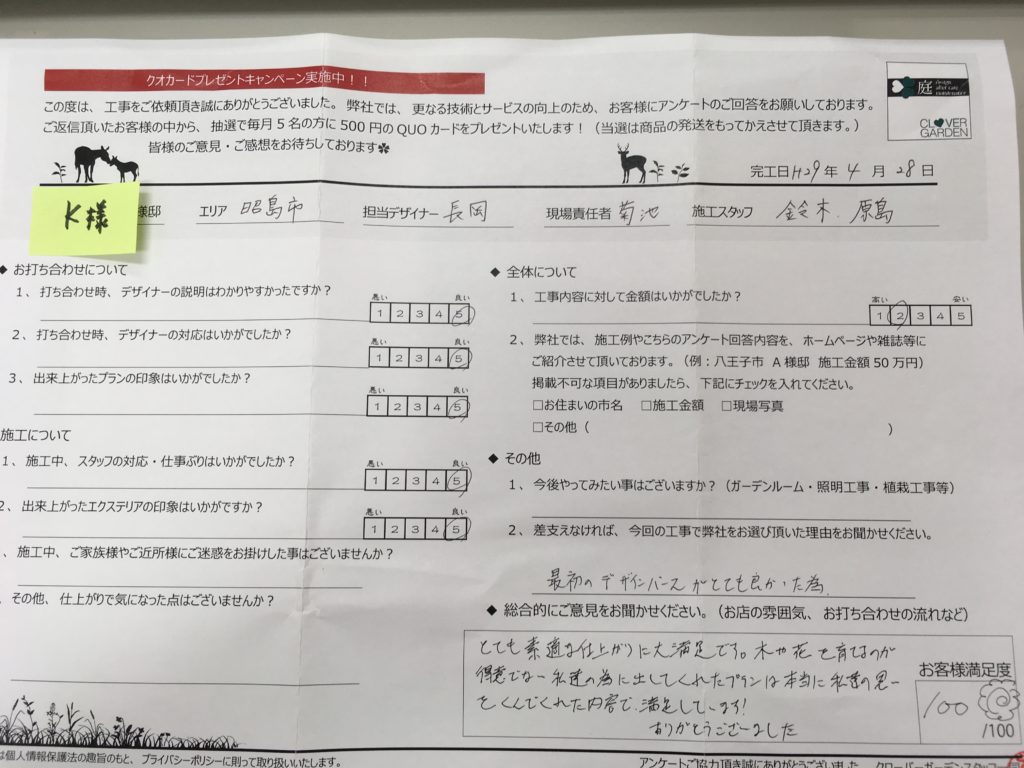 クオカードプレゼントキャンペーン実施中！！
この度は、工事をご依頼頂き誠にありがとうございました。弊社では、更なる技術とサービスの向上のため、お客様にアンケートのご回答をお願いしております。
ご返信頂いたお客様の中から、抽選で毎月5名の方に500円のQUOカードをプレゼントいたします！（当選は商品の発送をもってかえさせて頂きます。）
皆様のご意見・ご感想をお待ちしております✽
庭
design
after care
constructor
CLOVER
GARDEN
完工日H29年 4月 28日
K様
様邸 エリア 昭島市 担当デザイナー 長岡 現場責任者 菊池 施工スタッフ 鈴木、原島
◆ お打ち合わせについて
1、打ち合わせ時、デザイナーの説明はわかりやすかったですか？
悪い 良い
1 2 3 4 5
2、打ち合わせ時、デザイナーの対応はいかがでしたか？
悪い 良い
1 2 3 4 5
3、出来上がったプランの印象はいかがでしたか？
悪い 良い
1 2 3 4 5
施工について
1、施工中、スタッフの対応・仕事ぶりはいかがでしたか？
悪い 良い
1 2 3 4 5
2、出来上がったエクステリアの印象はいかがですか？
悪い 良い
1 2 3 4 5
、施工中、ご家族様やご近所様にご迷惑をお掛けした事はございませんか？
、その他、仕上がりで気になった点はございませんか？
◆ 全体について
1、工事内容に対して金額はいかがでしたか？
高い 安い
1 2 3 4 5
2、弊社では、施工例やこちらのアンケート回答内容を、ホームページや雑誌等に
ご紹介させて頂いております。（例：八王子市 A様邸 施工金額50万円）
掲載不可な項目がありましたら、下記にチェックを入れてください。
□お住まいの市名 □施工金額 □現場写真
□その他（ ）
◆ その他
1、今後やってみたい事はございますか？（ガーデンルーム・照明工事・植栽工事等）
2、差支えなければ、今回の工事で弊社をお選び頂いた理由をお聞かせください。
最初のデザインパースがとても良かった為
◆ 総合的にご意見をお聞かせください。（お店の雰囲気、お打ち合わせの流れなど）
とても素適な仕上がりに大満足です。木や花を育てるのが
得意でない私達の為に出してくれたプランは本当に私達の思い
をくんでくれた内容で、満足しています！
ありがとうございました
お客様満足度
100
/100
は個人情報保護法の趣旨のもと、プライバシーポリシーに則って取り扱いいたします。
アンケートご協力頂き誠にありがとうございました クローバーガーデンスタッフ一同